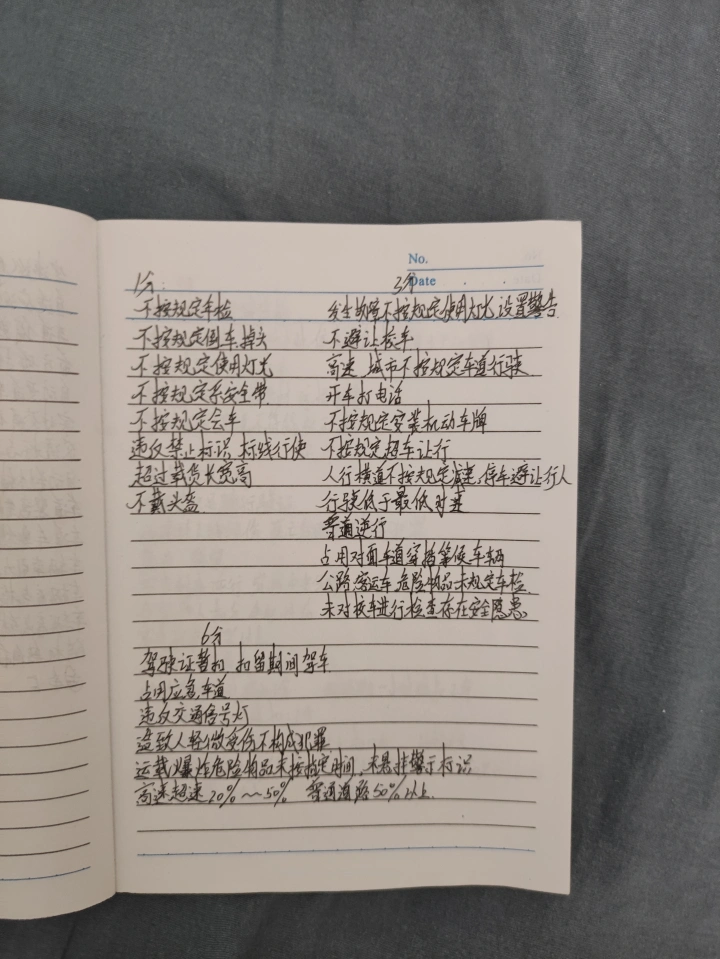 No.
Date
1分
不按规定车检
不按规定倒车掉头
不按规定使用灯光
不按规定系安全带
不按规定会车
违反禁止标识 标线行使
超过载货长宽高
不戴头盔
3分
发生故障不按规定使用灯光 设置警告
不避让校车
高速 城市不按规定车道行驶
开车打电话
不按规定安装机动车牌
不按规定超车让行
人行横道不按规定减速,停车避让行人
行驶低于最低时速
普通逆行
占用对面车道穿插等候车辆
公路客运车 危险物品未规定车检
未对校车进行检查存在安全隐患
6分
驾驶证暂扣 扣留期间驾车
占用应急车道
违反交通信号灯
致人轻微受伤不构成犯罪
运载爆炸危险物品未按指定时间,未悬挂警示标识
高速超速20%~50% 普通道路50%以上